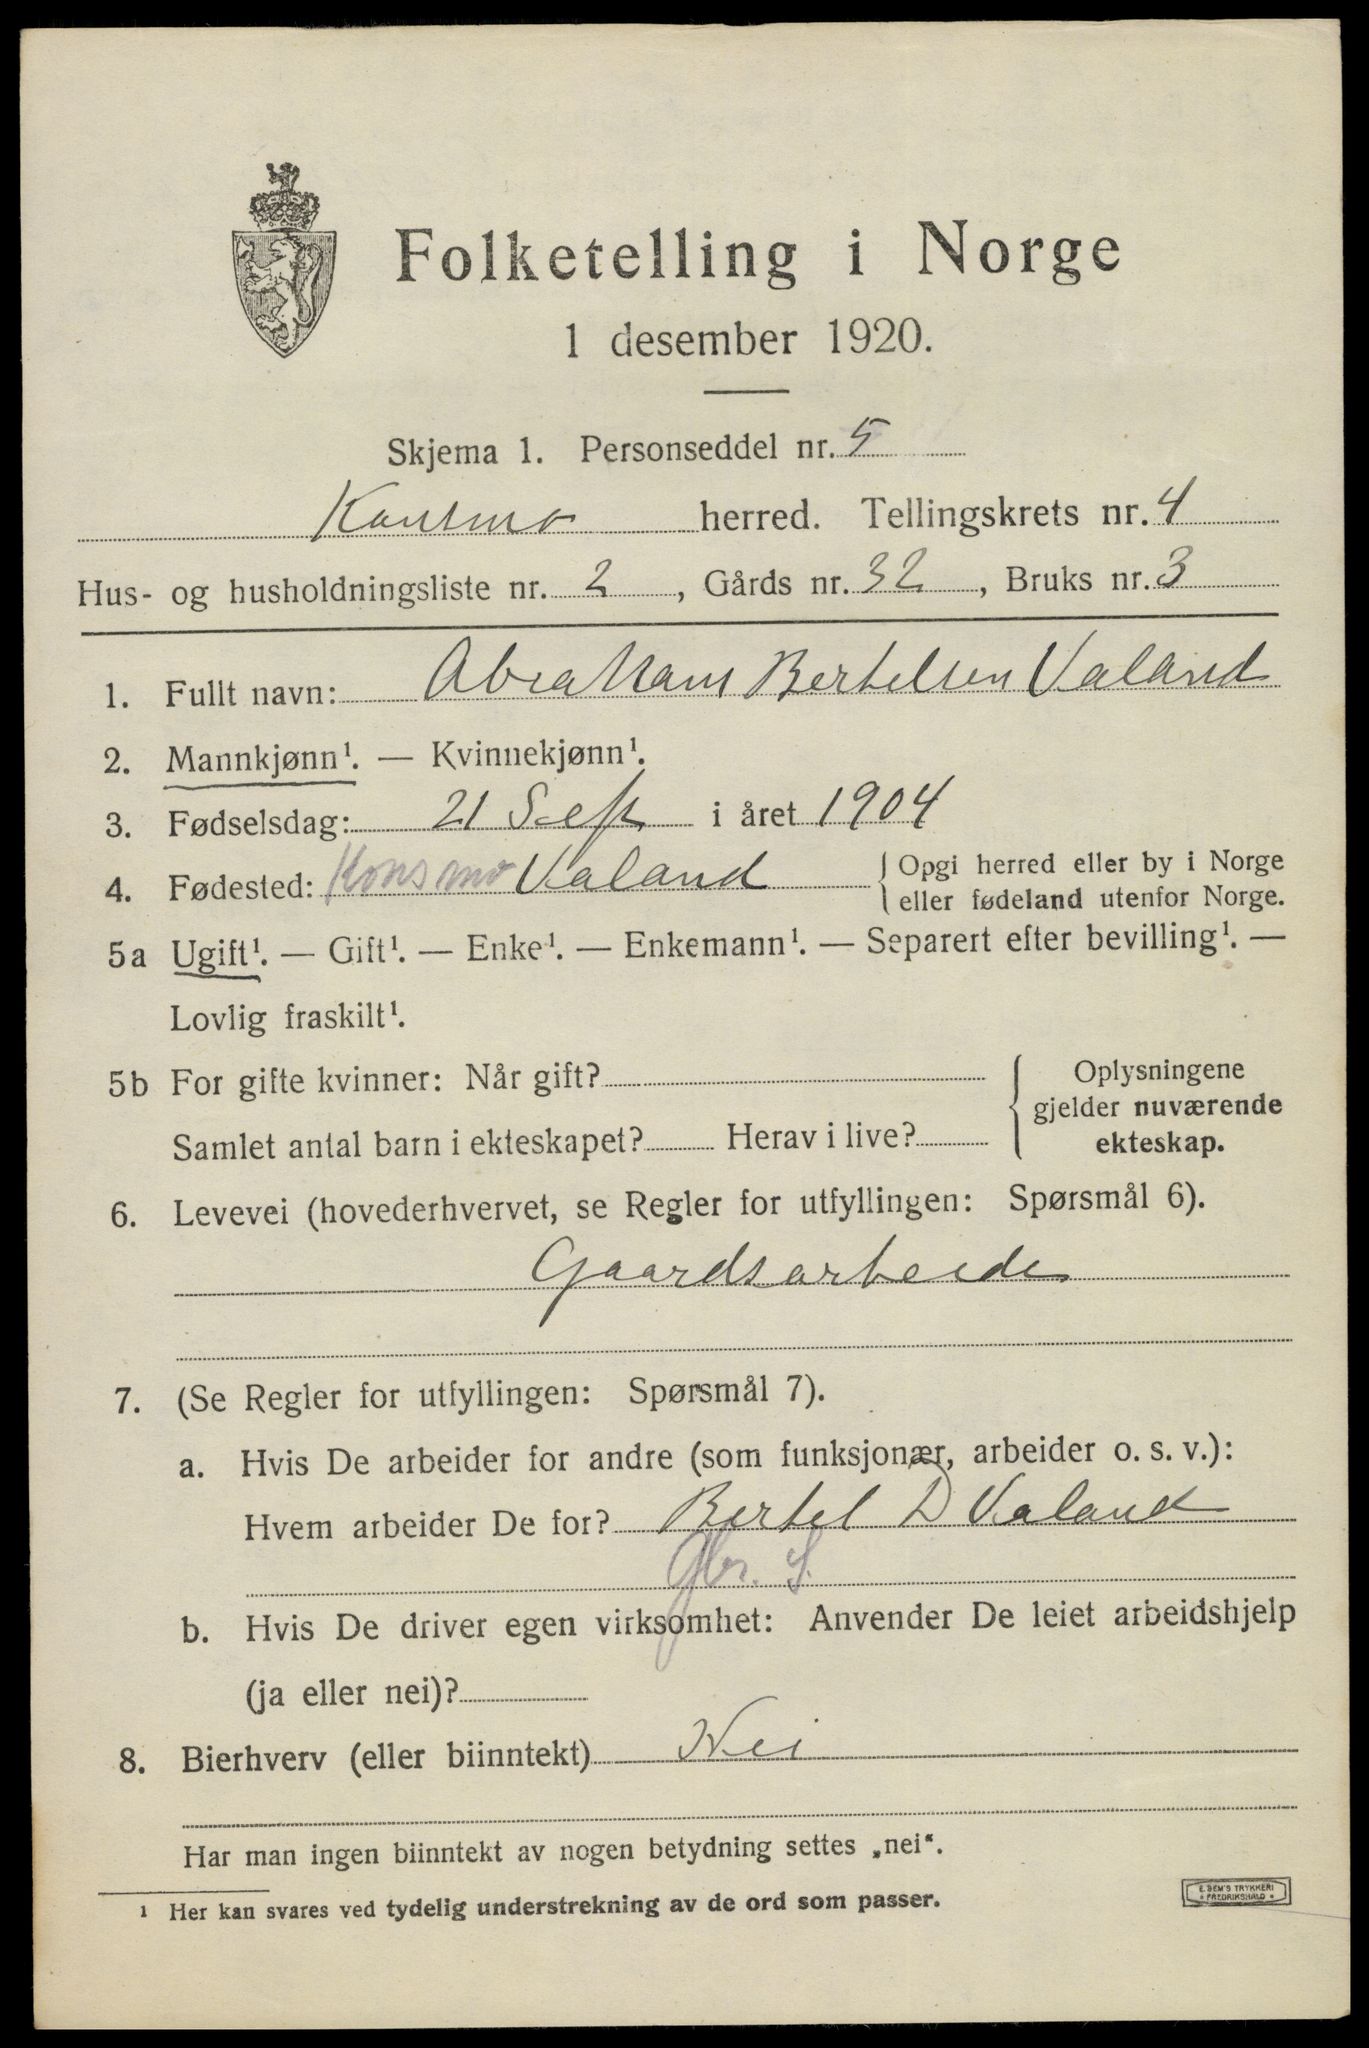 Folketelling i Norge
1 desember 1920.
Skjema 1. Personseddel nr. 5
Konsmo herred. Tellingskrets nr. 4
Hus- og husholdningsliste nr. 2, Gårds nr. 32, Bruks nr. 3
1. Fullt navn: Abraham Bertelsen Valand
2. Mannkjønn¹. — Kvinnekjønn¹.
3. Fødselsdag: 21 Sept i året 1904
4. Fødested: Konsmo Valand { Opgi herred eller by i Norge
eller fødeland utenfor Norge.
5a Ugift¹. — Gift¹. — Enke¹. — Enkemann¹. — Separert efter bevilling¹. —
Lovlig fraskilt¹.
5b For gifte kvinner: Når gift? { Oplysningene
gjelder nuværende
Samlet antal barn i ekteskapet? Herav i live? ekteskap.
6. Levevei (hovederhvervet, se Regler for utfyllingen: Spørsmål 6).
Gaardsarbeide
7. (Se Regler for utfyllingen: Spørsmål 7).
a. Hvis De arbeider for andre (som funksjonær, arbeider o. s. v.):
Hvem arbeider De for? Bertel D Valand
Gbr. S.
b. Hvis De driver egen virksomhet: Anvender De leiet arbeidshjelp
(ja eller nei)?
8. Bierhverv (eller biinntekt) Nei
Har man ingen biinntekt av nogen betydning settes „nei“.
¹ Her kan svares ved tydelig understrekning av de ord som passer.
E. SEM'S TRYKKERI
FREDRIKSHALD